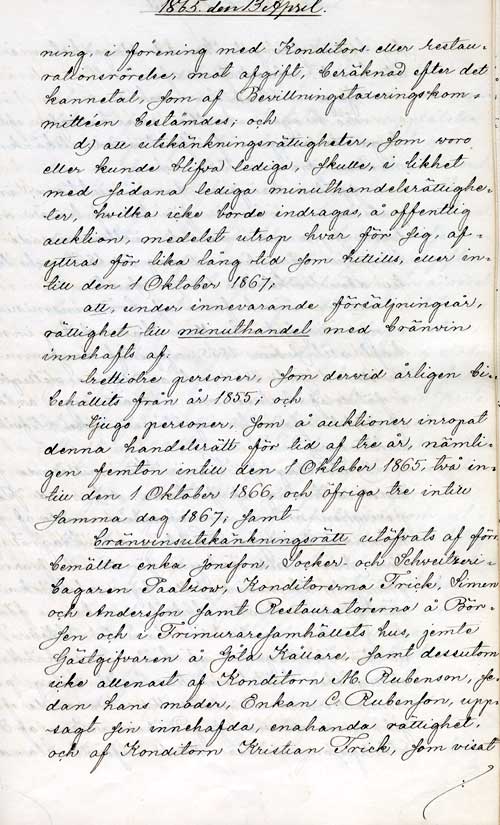 1865. den 13 April.
ning, i förening med Konditors- eller restau-
rationsrörelse, mot afgift, beräknad efter det
kannetal, som af Bevillningstaxeringskom-
mittéen bestämdes; och
d) att utskänkningsrättigheter, som voro
eller kunde blifva lediga, skulle, i likhet
med sådana lediga minuthandelsrättighe-
ter, hvilka icke borde indragas, å offentlig
auktion, medelst utrop hvar för sig, af-
yttras för lika lång tid som hittills, eller in-
till den 1 Oktober 1867;
att, under innevarande försäljningsår,
rättighet till minuthandel med bränvin
innehafts af:
trettiotre personer, som dervid årligen bi-
behållits från år 1855; och
tjugo personer, som å auktioner inropat
denna handelsrätt för tid af tre år, nämli-
gen femton intill den 1 Oktober 1865, två in-
till den 1 Oktober 1866, och öfriga tre intill
samma dag 1867; samt
Bränvinsutskänkningsrätt utöfvats af förr
bemälta enka Jonsson, Socker- och Schweitzeri-
bagaren Paalzow, Konditorerna Frick,
och Andersson samt Restauratörerna å Bör-
sen och i Frimuraresamhällets hus, jemte
Gästgifvaren å Göta Källare, samt dessutom
icke allenast af Konditorn M. Rubenson, se-
dan hans moder, Enkan C. Rubenson, upp-
sagt sin innehafda, enahanda rättighet,
och af Konditorn Kristian Frick, som visat